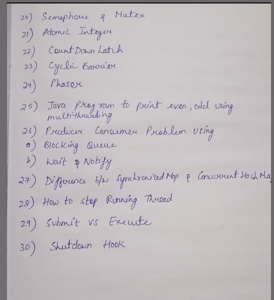 20) Semaphore & Mutex
21) Atomic Integer
22) CountDown Latch
23) Cyclic Barrier
24) Phaser
25) Java Program to print even, odd using
multithreading
26) Producer Consumer Problem using
a) Blocking Queue
b) Wait & Notify
27) Difference b/w Synchronized Map & Concurrent Hash Ma
28) How to stop Running Thread
29) Submit vs Execute
30) Shutdown Hook